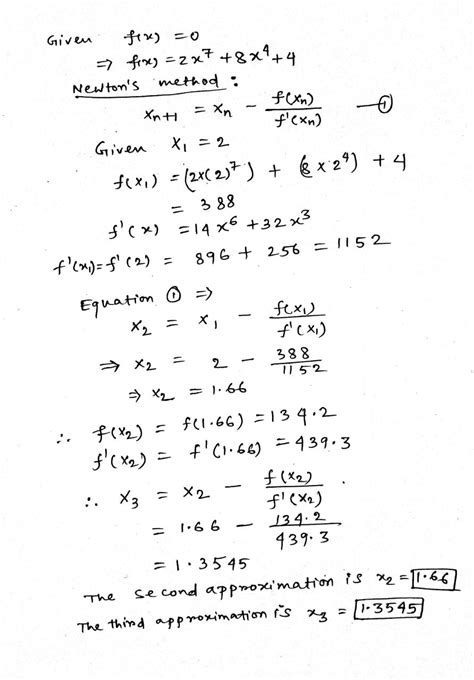 Given f(x) = 0
⇒ f(x) = 2x⁷ + 8x⁴ + 4
Newton's method :
xₙ₊₁ = xₙ - f(xₙ)/f'(xₙ) —①
Given x₁ = 2
f(x₁) = (2×(2)⁷) + (8×2⁴) + 4
= 388
f'(x) = 14x⁶ + 32x³
f'(x₁) = f'(2) = 896 + 256 = 1152
Equation ① ⇒
x₂ = x₁ - f(x₁)/f'(x₁)
⇒ x₂ = 2 - 388/1152
⇒ x₂ = 1.66
∴ f(x₂) = f(1.66) = 134.2
f'(x₂) = f'(1.66) = 439.3
∴ x₃ = x₂ - f(x₂)/f'(x₂) .
= 1.66 - 134.2/439.3
= 1.3545
The second approximation is x₂ = 1.66
The third approximation is x₃ = 1.3545